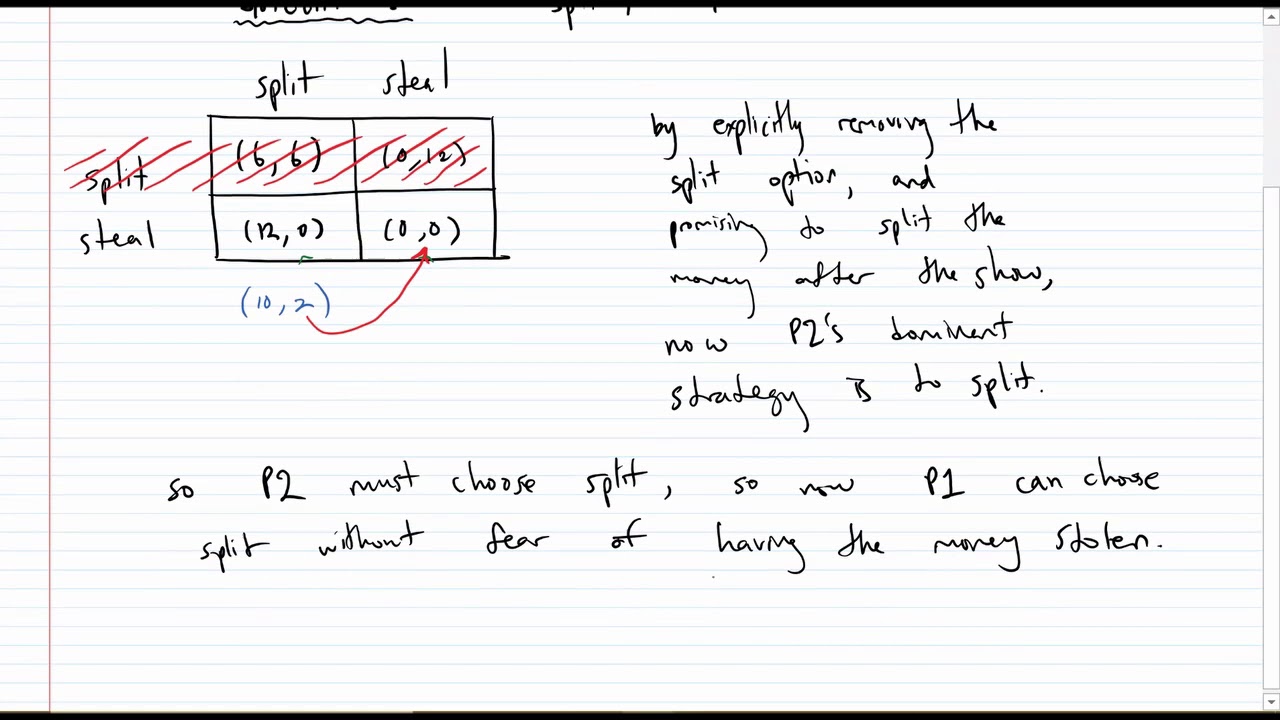 split steal
split (6, 6) (0, 12)
steal (12, 0) (0, 0)
(10, 2)
by explicitly removing the
split option, and
promising to split the
money after the show,
now P2's dominant
strategy is to split.
so P2 must choose split, so now P1 can choose
split without fear of having the money stolen.